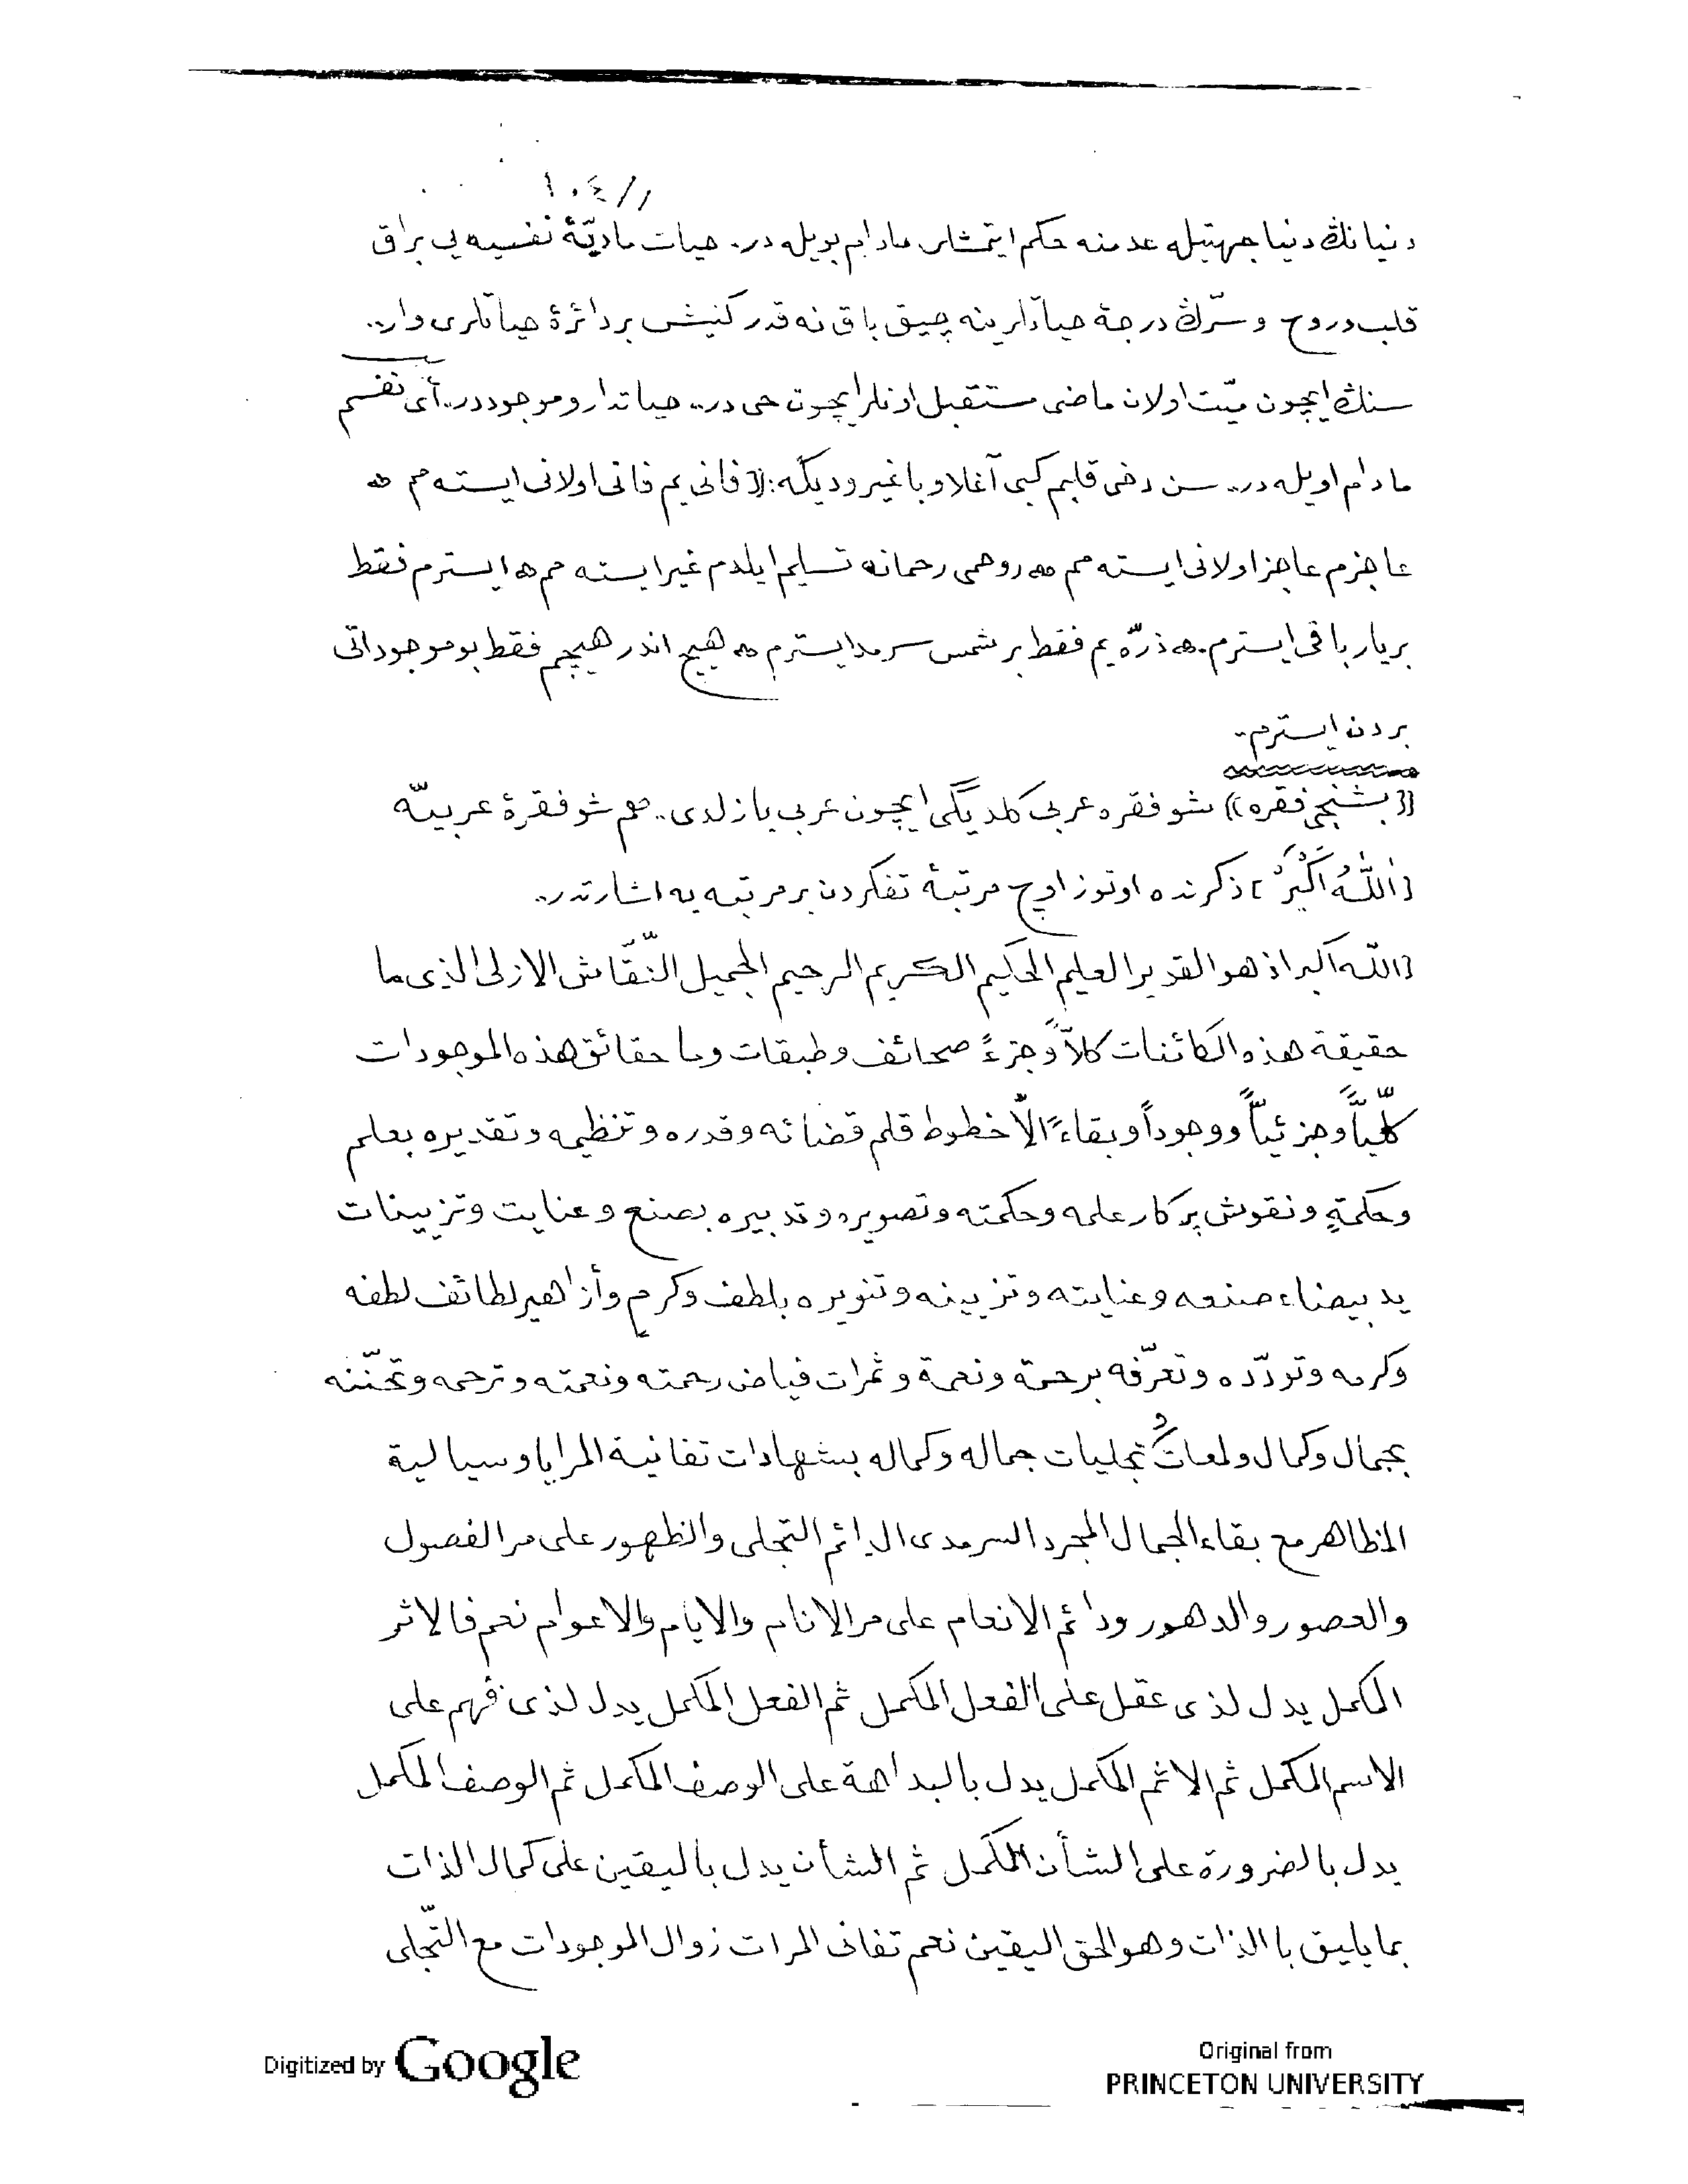 ١٠٤ //
دنيانڭ دنيا جهتيله عدمنه حكم ايتمشلر مادام بويله در. حيات ماديّۀ نفسيه يى براق
قلب وروح و سرّڭ درجۀ حياتلرينه چيق باق نه قدر كنيش بر دائرۀ حياتلرى وار..
سنڭ ايچون ميّت اولان ماضى مستقبل اونلر ايچون حى در.. حياتدار و موجوددر.. أى نفسم
مادام اويله در.. سن دخى قلبم كبى آغلا و باغير و ديكه: (( فانى يم فانى اولانى ايسته مم ه
عاجزم عاجز اولانى ايسته مم ه روحمى رحمانه تسليم ايلدم غير ايسته مم ه ايسترم فقط
بر يار باقى ايسترم. ه ذرّه يم فقط بر شمس سرمد ايسترم ه هيچ اندر هيچم فقط بو موجوداتى
بردن ايسترم..
(( بشنجى فقره )) شو فقره عربى كلديكى ايچون عربى يازلدى.. هم شو فقرۀ عربيّه
[ اَللّٰهُ اَكْبَرُ ] ذكرنده اوتوز اوچ مرتبۀ تفكردن بر مرتبه يه اشارتدر..
[ اللّه اكبر اذ هو القدير العليم الحكيم الكريم الرحيم الجميل النّقّاش الازلى الذى ما
حقيقة هذه الكائنات كلاًّ وجزءً صحائف وطبقات وما حقائق هذه الموجودات
كلّياًّ وجزئياًّ ووجوداً وبقاءً الاّ خطوط قلم قضائه وقدره وتنظيمه وتقديره بعلم
وحكمةٍ ونقوش پركار علمه وحكمته وتصويره وتدبيره بصنع وعنايت وتزيينات
يد بيضاء صنعه وعنايته وتزيينه وتنويره بلطف وكرم وأزاهير لطائف لطفه
وكرمه وتودّده وتعرّفه برحمة ونعمة وثمرات فياض رحمته ونعمته وترحمه وتحنّنه
بجمال وكمال ولمعاتُ تجليات جماله وكماله بشهادات تفانية المرايا وسيالية
المظاهر مع بقاء الجمال المجرد السرمدى الدائم التجلى والظهور على مر الفصول
والعصور والدهور ودائم الانعام على مر الانام والايام والاعوام نعم فالاثر
المكمل يدل لذى عقل على الفعل المكمل ثم الفعل المكمل يدل لذى فهم على
الاسم المكمل ثم الاثم المكمل يدل بالبداهة على الوصف المكمل ثم الوصف المكمل
يدل بالضرورة على الشأن المكمل ثم الشأن يدل باليقين على كمال الذات
بما يليق با الذات وهو الحق اليقين نعم تفانى المرات زوال الموجودات مع التّجلى
Digitized by Google
Original from
PRINCETON UNIVERSITY